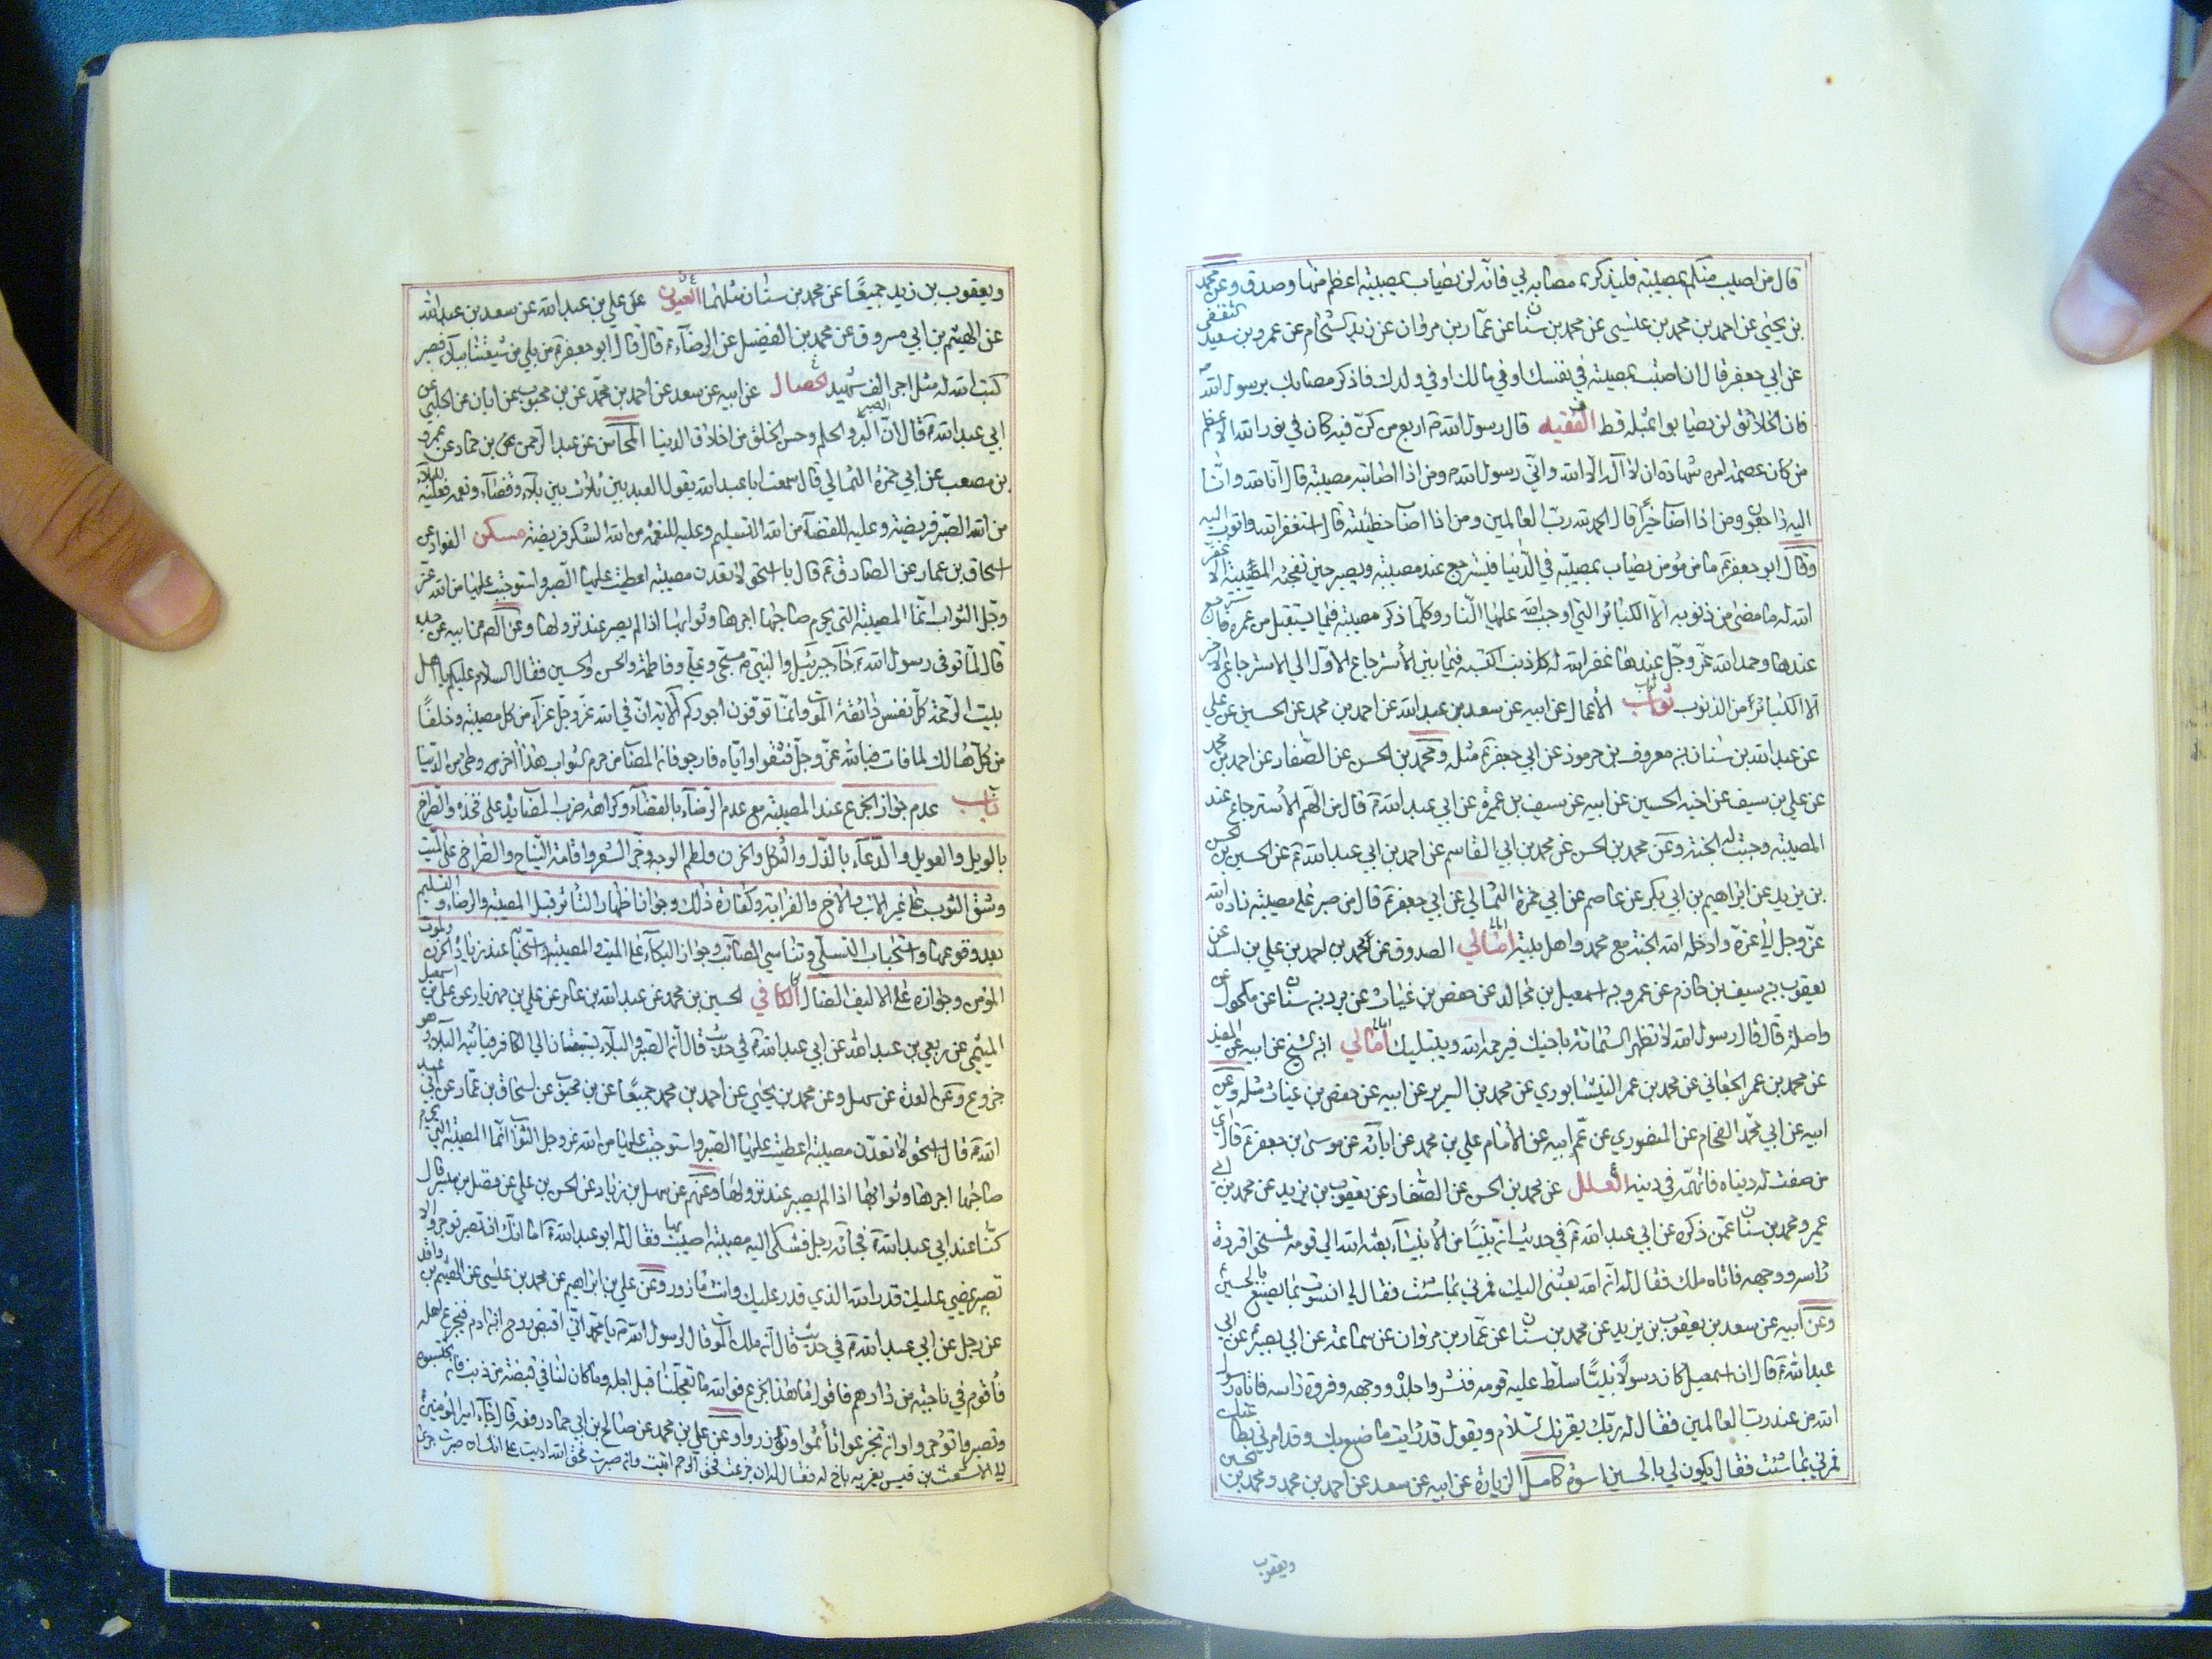 قال من اصيب منكم بمصيبة فليذكر مصابه بي فانه لن يصاب بمصيبة اعظم منها وصدق وعن محمد
بن يحيى عن احمد بن محمد بن عيسى عن محمد بن سنان عن عمار بن مروان عن زيد الشحام عن عمرو بن سعيد الثقفي
عن ابي جعفر قال ان اصبت بمصيبة في نفسك او في مالك او في ولدك فاذكر مصابك برسول الله
فان الخلائق لن يصابوا بمثله قط الفقيه قال رسول الله اربع من كن فيه كان في نور الله الاعظم
من كان عصمة امره شهادة ان لا اله الا الله واني رسول الله ومن اذا اصابته مصيبة قال انا لله وانا
اليه راجعون ومن اذا اصاب خيرا قال الحمد لله رب العالمين ومن اذا اصاب خطيئة قال استغفر الله واتوب اليه
وقال ابو جعفر ما من مؤمن يصاب بمصيبة في الدنيا فيسترجع عند مصيبته ويصبر حين تفجئه المصيبة الا غفر
الله له ما مضى من ذنوبه الا الكبائر التي اوجب الله عليها النار وكلما ذكر مصيبة فيما يستقبل من عمره فاسترجع
عندها وحمد الله عز وجل عندها غفر الله له كل ذنب اكتسبه فيما بين الاسترجاع الاول الى الاسترجاع الاخير
الا الكبائر من الذنوب ثواب الأعمال عن ابيه عن سعد بن عبد الله عن احمد بن محمد عن الحسين عن علي
عن عبد الله بن سنان عن معروف بن خربوذ عن ابي جعفر مثله ومحمد بن الحسن عن الصفار عن احمد بن محمد
عن علي بن سيف عن اخيه الحسين عن ابيه عن سيف بن عميرة عن ابي عبد الله قال من الهم الأسترجاع عند
المصيبة وجبت له الجنة وعن محمد بن الحسن عن محمد بن ابي القاسم عن احمد بن ابي عبد الله عن الحسين بن الحسن
بن يزيد عن ابراهيم بن ابي بكر عن عاصم عن ابي حمزة الثمالي عن ابي جعفر قال من صبر على مصيبة زاده الله
عز وجل عزا وادخله الله الجنة مع محمد واهل بيته امالي الصدوق عن محمد بن احمد بن علي بن اسد عن
يعقوب بن سيف بن حازم عن عمر بن اسمعيل بن مجالد عن حفص بن غياث عن برد بن سنان عن مكحول عن
واصلة قال قال رسول الله لا تظهر الشماتة باخيك فيرحمه الله ويبتليك امالي ابن الشيخ عن ابيه عن المفيد
عن محمد بن عمر الجعابي عن محمد بن عمر النيشابوري عن محمد بن السري عن ابيه عن حفص بن غياث مثله وعن
ابيه عن ابي محمد الفحام عن المنصوري عن عم ابيه عن الأمام علي بن محمد عن ابائه عن موسى بن جعفر قال
من صفت له دنياه فاتهمه في دينه العلل عن محمد بن الحسن عن الصفار عن يعقوب بن يزيد عن محمد بن ابي
عمير ومحمد بن سنان عمن ذكره عن ابي عبد الله في حديث ان نبيا من الأنبياء بعثه الله الى قومه فسلخوا فروة
راسه ووجهه فاتاه ملك فقال له ان الله بعثني اليك فمرني بما شئت فقال لي اسوة بما يصنع بالحسين
وعن ابيه عن سعد بن يعقوب بن يزيد عن محمد بن سنان عن عمار بن مروان عن سماعة عن ابي بصير عن ابي
عبد الله قال ان اسمعيل كان رسولا نبيا سلط عليه قومه فقشروا جلدة وجهه وفروة راسه فاتاه رسول
الله من عند رب العالمين فقال له ربك يقرئك السلام ويقول قد رايت ما صنع بك وقد امرني بطاعتك
فمرني بما شئت فقال يكون لي بالحسين اسوة كامل الزيارة عن ابيه عن سعد عن احمد بن محمد ومحمد بن الحسين
ويعقوب
ويعقوب بن زيد جميعا عن محمد بن سنان مثلهما العيون عن علي بن عبد الله عن سعد بن عبد الله
عن الهيثم بن ابي مسروق عن محمد بن الفضيل عن الرضا قال قال ابو جعفر من بلي من شيعتنا ببلاء فصبر
كتب الله له مثل اجر الف شهيد الخصال عن ابيه عن سعد عن احمد بن محمد عن بن محبوب عن ابان عن الحلبي عن
ابي عبد الله قال ان الصبر والبر والحلم وحسن الخلق من اخلاق الدنيا المحاسن عن عبد الرحمن بن حماد عن عمرو
بن مصعب عن ابي حمزة الثمالي قال سمعت ابا عبد الله يقول العبد بين ثلاث بين بلاء وقضاء ونعمة فعليه للبلاء
من الله الصبر فريضة وعليه للقضاء من الله التسليم وعليه للنعمة من الله الشكر فريضة مسكن الفواد عن
اسحاق بن عمار عن الصادق قال يا اسحق لا تعدن مصيبة اعطيت عليها الصبر واستوجبت عليها من الله عز
وجل الثواب انما المصيبة التي يحرم صاحبها اجرها وثوابها اذا لم يصبر عند نزولها وعن الصم عن ابيه عن جده
قال لما توفى رسول الله جاء جبرئيل والنبي مسجى وعلي وفاطمة والحسن والحسين فقال السلام عليكم يا اهل
بيت الرحمة كل نفس ذائقة الموت وانما توفون اجوركم الاية ان في الله عز وجل عزاء من كل مصيبة وخلفا
من كل هالك لما فات فبالله عز وجل فثقوا واياه فارجوا فان المصاب من حرم الثواب هذا اخر وطئ من الدنيا
باب عدم جواز الجزع عند المصيبة مع عدم الرضاء بالقضاء وكراهة ضرب المصاب يده على فخذه والصراخ
بالويل والعويل والدعاء بالذل والثكل والحزن ولطم الوجه وجز الشعر واقامة النياح والصراخ على الميت
وشق الثوب على غير الاب والاخ والقرابة وكفارة ذلك وجواز اظهار التأثر قبل المصيبة والرضاء والتسليم
بعد وقوعها واستحباب التسلي وتناسي المصائب وجواز البكاء على الميت والمصيبة واستحبابه عند زيادة الحزن ولموت
المؤمن وجوازه على الاليف الضال الكافي الحسين بن محمد عن عبد الله بن عامر عن علي بن مهزيار عن علي بن اسمعيل
الميثمي عن ربعي بن عبد الله عن ابي عبد الله في حديث قال ان الصبر والبلاء يستبقان الى الكافر فياتيه البلاء وهو
جزوع وعن العدة عن سهل وعن محمد بن يحيى عن احمد بن محمد جميعا عن بن محبوب عن اسحاق بن عمار عن ابي عبد
الله قال يا اسحق لا تعدن مصيبة اعطيت عليها الصبر واستوجبت عليها من الله عز وجل الثواب انما المصيبة التي يحرم
صاحبها اجرها وثوابها اذا لم يصبر عند نزولها وعنهم عن سهل بن زياد عن الحسن بن علي عن فضل بن ميسر قال
كنا عند ابي عبد الله فجائه رجل فشكى اليه مصيبة اصيب بها فقال له ابو عبد الله اما انك ان تصبر توجر والا
تصبر يمضي عليك قدر الله الذي قدر عليك وانت مازور وعن علي بن ابراهيم عن محمد بن عيسى عن الهيثم بن واقد
عن رجل عن ابي عبد الله في حديث قال ان ملك الموت قال لرسول الله يا محمد اني اقبض روح ابن ادم فيجزع اهله
فاقوم في ناحية من دارهم فاقول ما هذا الجزع فوالله ما تعجلناه قبل اجله وما كان لنا في قبضه من ذنب فان تحتسبوه
وتصبروا توجروا وان تجزعوا تأثموا وتوزروا وعن علي بن محمد عن صالح بن ابي حماد رفعه قال جاء امير المؤمنين
الى الاشعث بن قيس يعزيه باخ له فقال له ان جزعت فحق الرحم اتيت وان صبرت فحق الله اديت على انك ان صبرت جرى